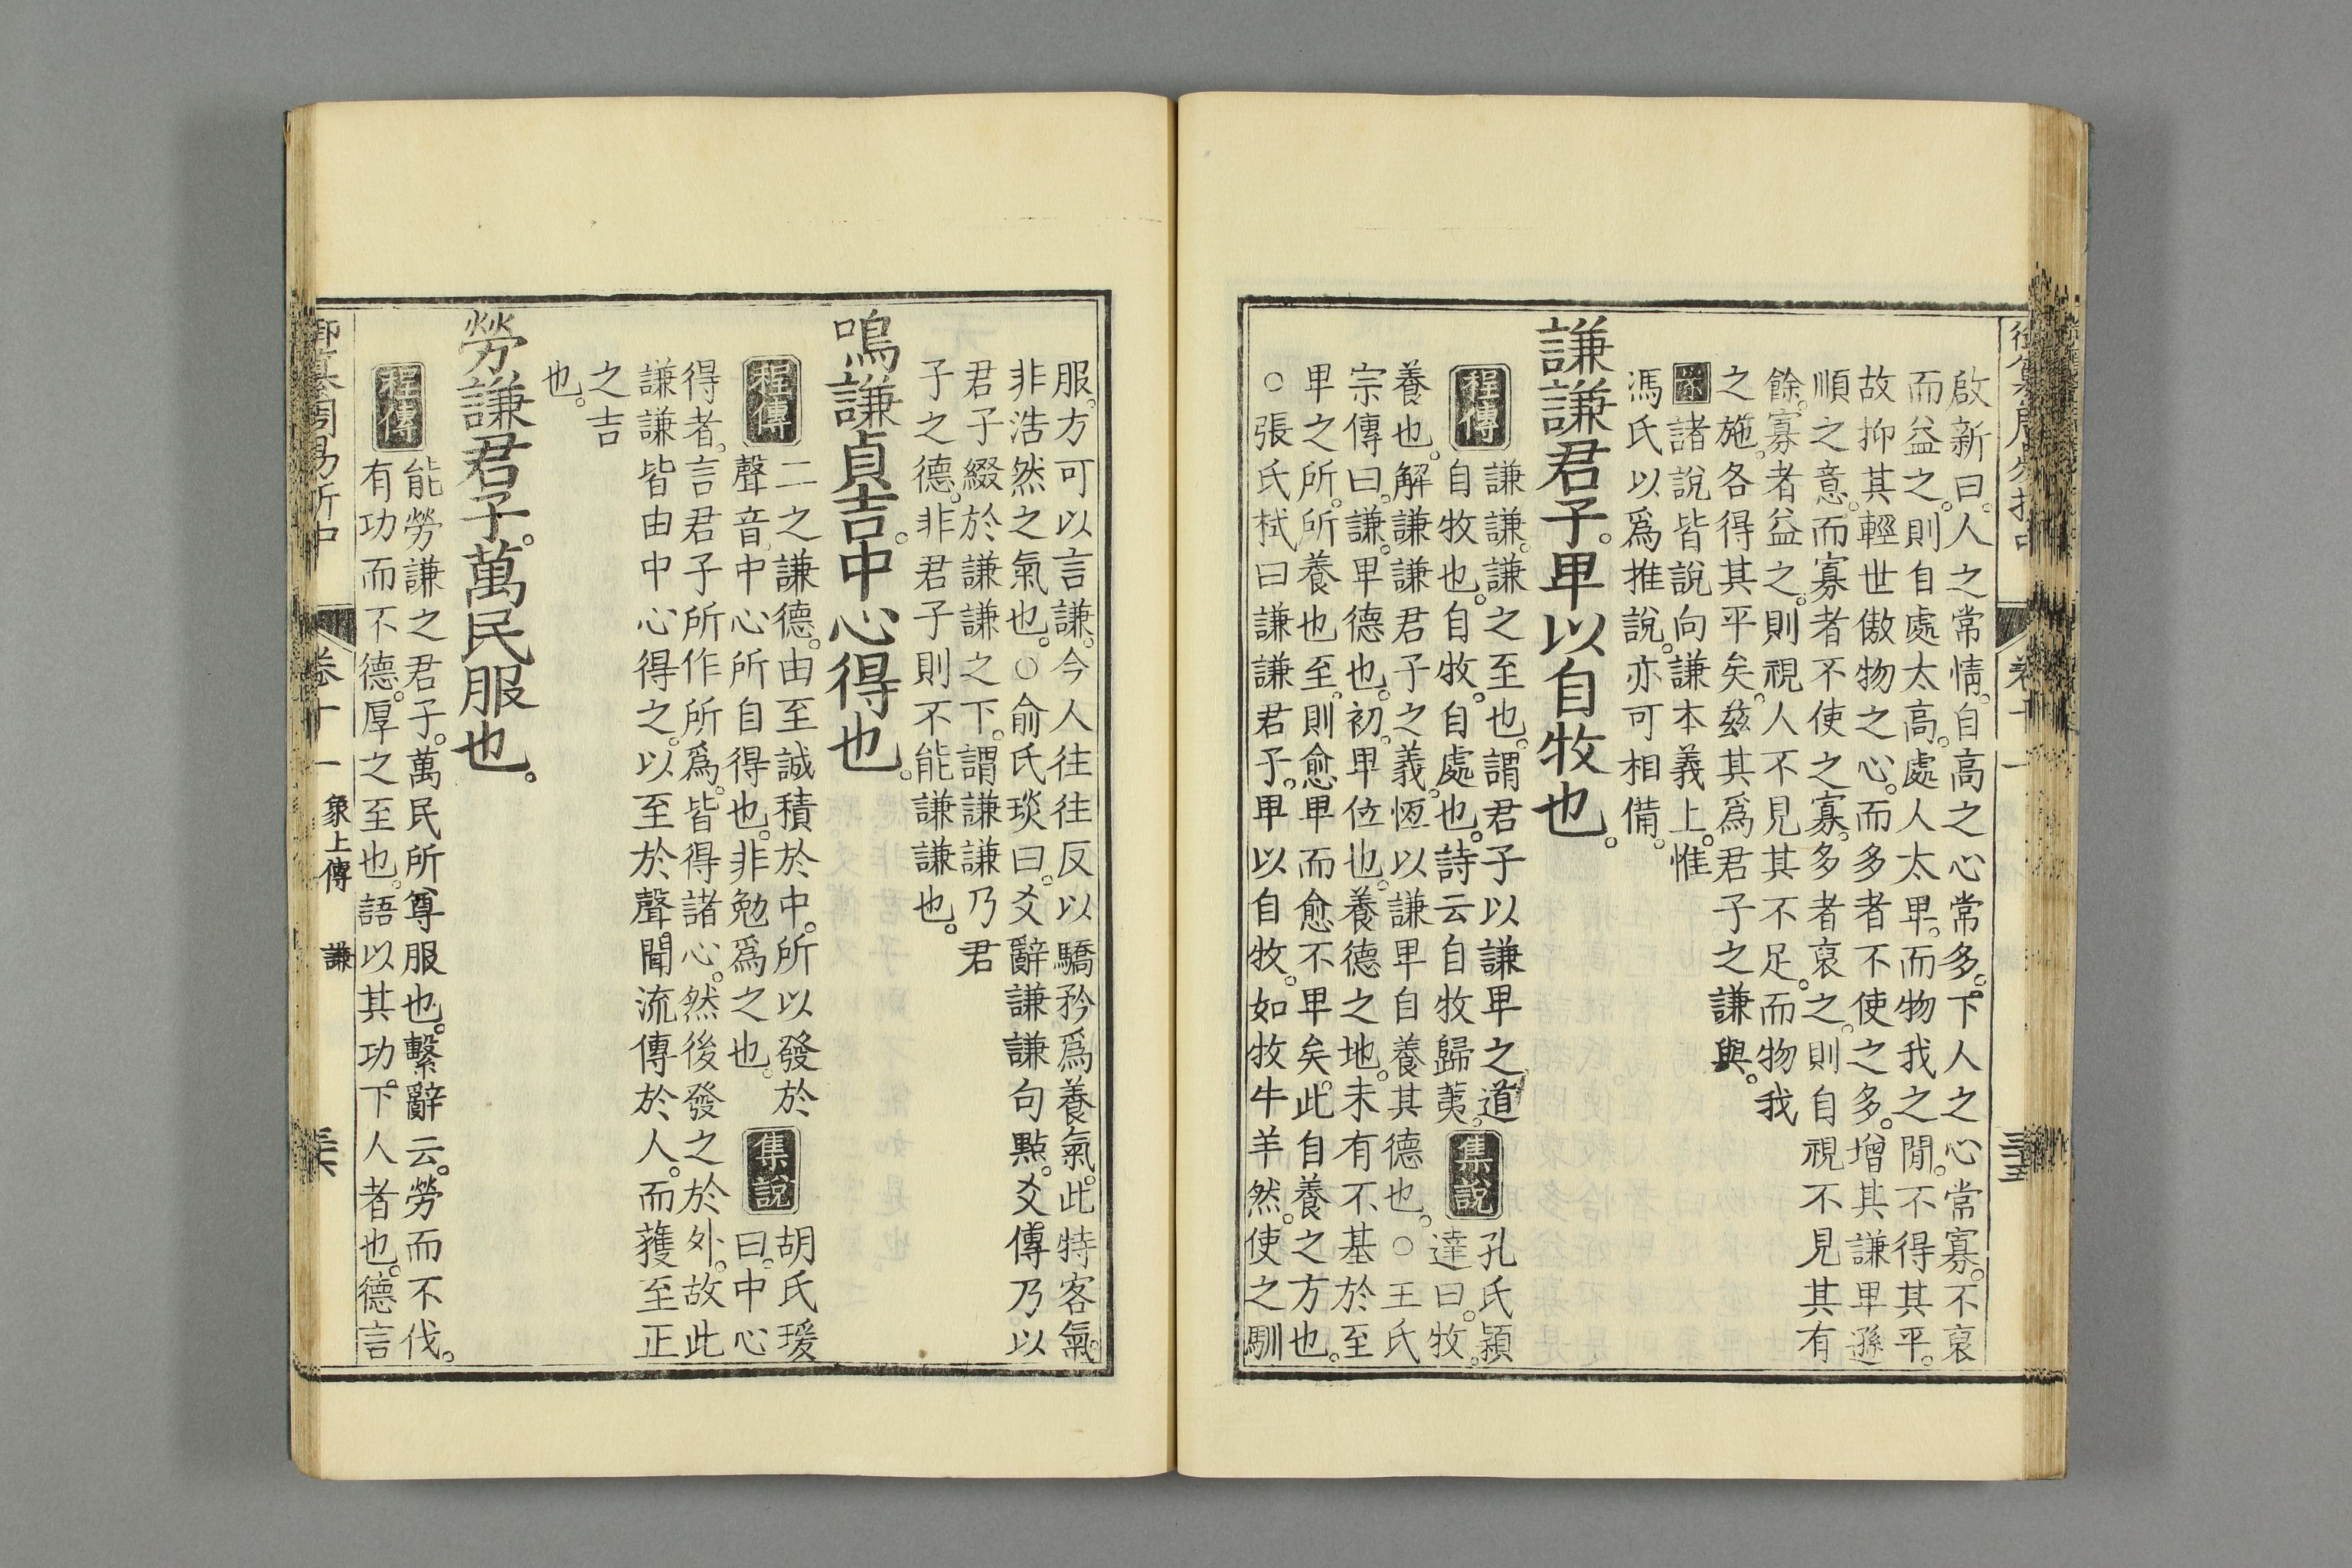 啟新曰。人之常情。自高之心常多。下人之心常寡。不裒
而益之。則自處太高。處人太卑。而物我之閒。不得其平。
故抑其輕世傲物之心。而多者不使之多。增其謙卑遜
順之意。而寡者不使之寡。多者裒之。則自視不見其有
餘。寡者益之。則視人不見其不足。而物我
之施。各得其平矣。茲其爲君子之謙與。
案諸說皆說向謙本義上。惟
馮氏以爲推說。亦可相備。
謙謙君子。卑以自牧也。
程傳
謙謙。謙之至也。謂君子以謙卑之道
自牧也。自牧。自處也。詩云自牧歸荑。
集說
孔氏穎
達曰。牧。
養也。解謙謙君子之義。恆以謙卑自養其德也。○王氏
宗傳曰。謙。卑德也。初。卑位也。養德之地。未有不基於至
卑之所。所養也至。則愈卑而愈不卑矣。此自養之方也。
○張氏栻曰謙謙君子。卑以自牧。如牧牛羊然。使之馴
服。方可以言謙。今人往往反以驕矜爲養氣。此特客氣。
非浩然之氣也。○俞氏琰曰。爻辭謙謙句點。爻傳乃以
君子綴於謙謙之下。謂謙謙乃君
子之德。非君子則不能謙謙也。
鳴謙貞吉。中心得也。
程傳
二之謙德。由至誠積於中。所以發於
聲音。中心所自得也。非勉爲之也。
集說
胡氏瑗
曰。中心
得者。言君子所作所爲。皆得諸心。然後發之於外。故此
謙謙皆由中心得之。以至於聲聞流傳於人。而獲至正
之吉
也。
勞謙君子。萬民服也。
程傳
能勞謙之君子。萬民所尊服也。繫辭云。勞而不伐。
有功而不德。厚之至也。語以其功。下人者也。德言
御纂周易折中
卷十一
象上傳
謙